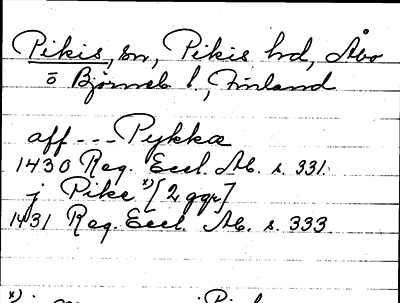 Pikis, sn, Pikis hd, Åbo
o Björneb l., Finland
aff --- Pykkæ
1430 Reg. Eccl. Ab. s. 331.
j Pike x) [2 ggr]
1431 Reg. Eccl. Ab. s. 333
x) j